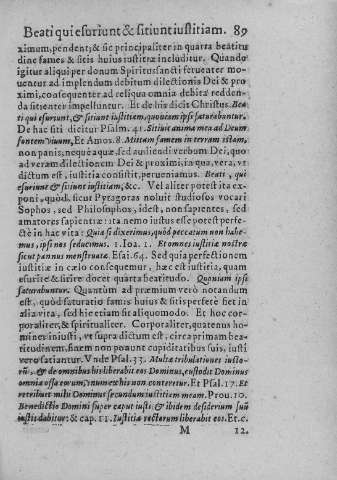 Beati qui esuriunt & sitiunt iustitiam. 89
ximum, pendent; & sic principaliter in quarta beatitu
dine fames & sitis huius iustitiæ includitur. Quando
igitur aliqui per donum Spiritussancti feruenter mo-
uentur ad implendum debitum dilectionis Dei & pro
ximi, consequenter ad reliqua omnia debita redden-
da sitienter impelluntur. Et de his dicit Christus. Bea-
ti qui esuriunt, & sitiunt iustitiam, quoniam ipsi saturabuntur.
De hac siti dicitur Psalm. 41. Sitiuit anima mea ad Deum
fontem viuum, Et Amos. 8. Mittam famem in terram istam,
non panis, neque aquæ, sed audiendi verbum Dei, quo
ad veram dilectionem Dei & proximi, in qua, vera, vt
dictum est, iustitia consistit, perueniamus. Beati, qui
esuriunt & sitiunt iustitiam, &c. Vel aliter potest ita ex
poni, quòd, sicut Pytagoras noluit studiosos vocari
Sophos, sed Philosophos, idest, non sapientes, sed
amatores sapientiæ: ita nemo iustus esse potest perfe-
ctè in hac vita: Quia si dixerimus, quòd peccatum non habe-
mus, ipsi nos seducimus. 1. Ioa. 1. Et omnes iustitiæ nostræ
sicut pannus menstruatæ. Esai. 64. Sed quia perfectionem
iustitiæ in cælo consequemur, hæc est iustitia, quam
esurire & sitire docet quarta beatitudo. Quoniam ipsi
saturabuntur. Quantùm ad præmium verò notandum
est, quòd saturatio famis huius & sitis perfetè fiet in
alia vita, sed hic etiam fit aliquo modo. Et hoc cor-
poraliter, & spiritualiter. Corporaliter, quatenus ho-
mines iniusti, vt supra dictum est, circa primam bea-
titudinem, finem non ponunt cupiditatibus suis, iusti
verò satiantur. Vnde Psal. 33. Multæ tribulationes iusto-
rũ, & de omnibus his liberabit eos Dominus, custodit Dominus
omnia ossa eorum, vnum ex his non conteretur. Et Psal. 17. Et
retribuet mihi Dominus secundum iustitiam meam. Prou. 10.
Benedictio Domini super caput iusti: & ibidem desiderium suũ
iustis dabitur: & cap. 11. Iustitia rectorum liberabit eos. Et. c.
M 12.